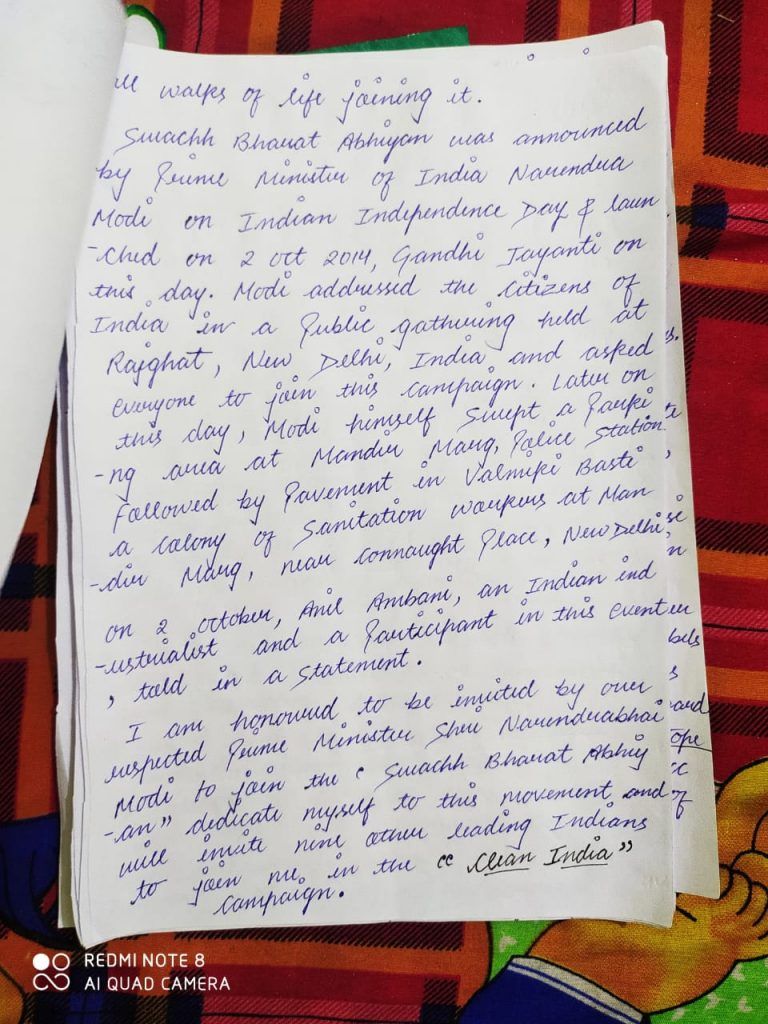 all walks of life joining it.
Swachh Bharat Abhiyan was announced
by Prime Minister of India Narendra
Modi on Indian Independence Day & laun
-ched on 2 oct 2014, Gandhi Jayanti on
this day. Modi addressed the citizens of
India in a Public gathering held at
Rajghat, New Delhi, India and asked
everyone to join this campaign. Later on
this day, Modi himself swept a Parki
-ng area at Mandir Marg, Police Station
followed by Pavement in Valmiki Basti,
a colony of Sanitation workers at Man
-dir Marg, near connaught Place, New Delhi,
on 2 october, Anil Ambani, an Indian ind
-ustrialist and a Participant in this event
, told in a statement.
I am honoured to be invited by our
respected Prime Minister Shri Narendrabhai
Modi to join the " Swachh Bharat Abhiy
-an" dedicate myself to this movement and
will invite nine other leading Indians
to join me in the "Clean India"
campaign.
REDMI NOTE 8
AI QUAD CAMERA